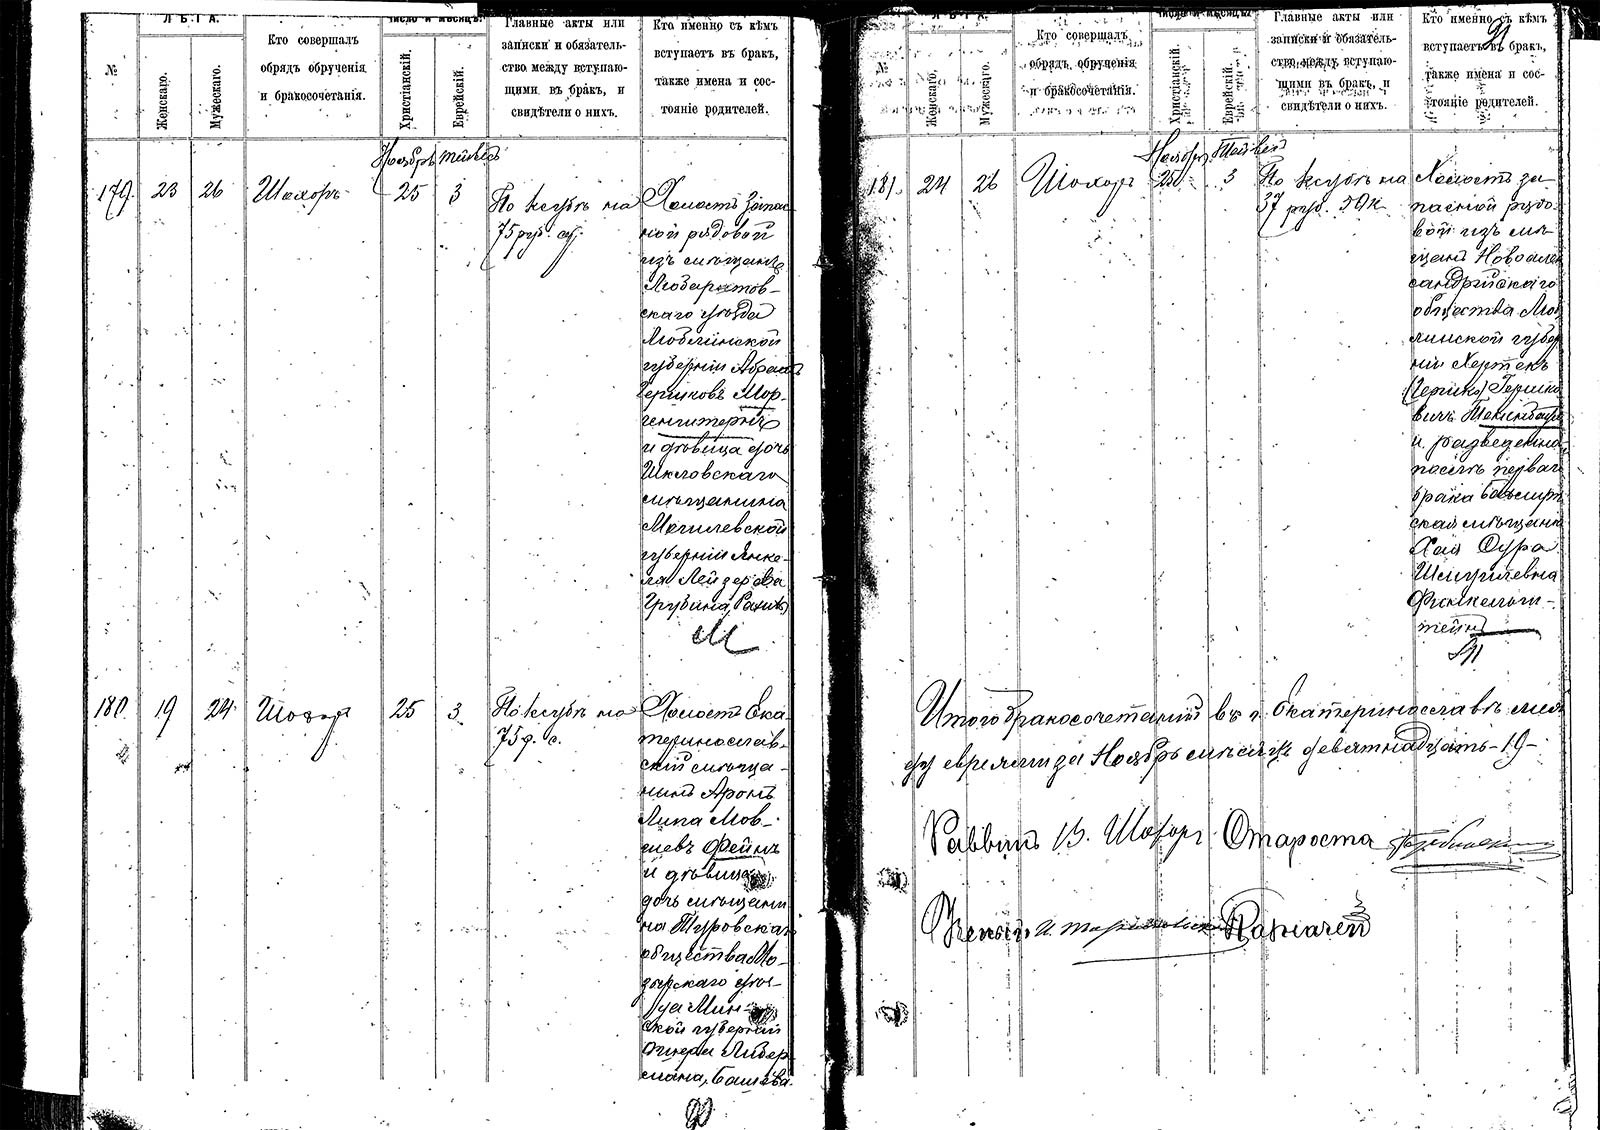 ЛѢТА.
Число и мѣсяцъ.
№
Женскаго.
Мужескаго.
Кто совершалъ
обрядъ обрученія
и бракосочетанія.
Христіанскій.
Еврейскій.
Главные акты или
записки и обязатель-
ство между вступаю-
щими въ бракъ, и
свидѣтели о нихъ.
Кто именно съ кѣмъ
вступаетъ въ бракъ,
также имена и сос-
тояніе родителей.
Ноябрь
179. 23 26 Шохоръ 25 3
По ксубѣ на
75 ру.
Холостъ запас
ной рядовой
изъ мѣщанъ
Любартов-
скаго уѣзда
Люблинской
губерніи Абрамъ
Гершковъ Мор-
генштернъ
и дѣвица дочь
Шкловскаго
мѣщанина
Могилевской
губерніи Янке-
ля Лейзерова
180 19 24 Шохоръ 25 3
По ксубѣ на
75 р. с.
Холостъ Ека-
теринослав-
скій мѣща-
нинъ Аронъ
Липа Мов-
шевъ Фейнъ
и дѣвица
дочь мѣщани
на Туровскаго
общества Мо-
зырскаго уѣз-
да Мин-
ской губерніи
Либер
мана,
ЛѢТА.
Число и мѣсяцъ.
№
Женскаго.
Мужескаго.
Кто совершалъ
обрядъ обрученія
и бракосочетанія.
Христіанскій.
Еврейскій.
Главные акты или
записки и обязатель-
ство между вступаю-
щими въ бракъ, и
свидѣтели о нихъ.
Кто именно съ кѣмъ
вступаетъ въ бракъ,
также имена и сос-
тояніе родителей.
91
Ноябрь
181. 24 26 Шохоръ 25 3
По ксубѣ на
37 руб. 50 к
Холостъ за-
пасной рядо-
вой изъ мѣ-
щанъ Новоалек
сандрійскаго
общества Люб
линской губер
ніи
Гершко
вичъ
и разведенная
послѣ перваго
брака
ская мѣщанка
Хая Сура
Шмулевна
Финкельш-
тейнъ
Итого бракосочетаній въ г. Екатеринославѣ меж
ду евреями за Ноябрь мѣсяцъ девятнадцать -19-
Раввинъ В. Шохоръ Староста
Ученый Казначей